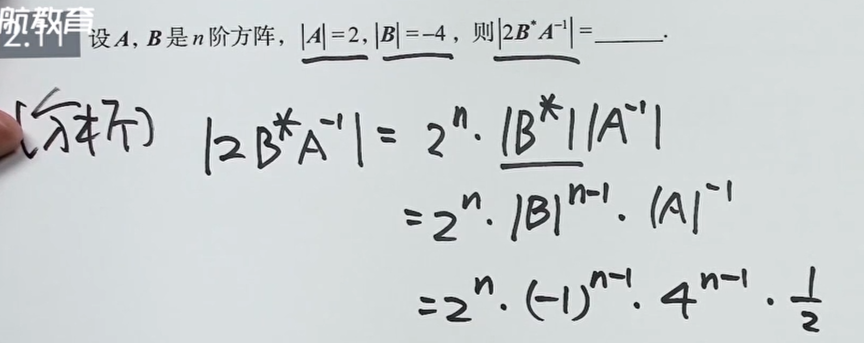 航教育
2.11 设A, B是n阶方阵，|A|=2, |B|=-4，则|2B*A⁻¹|=______.
[分析] |2B*A⁻¹| = 2ⁿ · |B*||A⁻¹|
= 2ⁿ · |B|ⁿ⁻¹ · |A|⁻¹
= 2ⁿ · (-1)ⁿ⁻¹ · 4ⁿ⁻¹ · 1/2